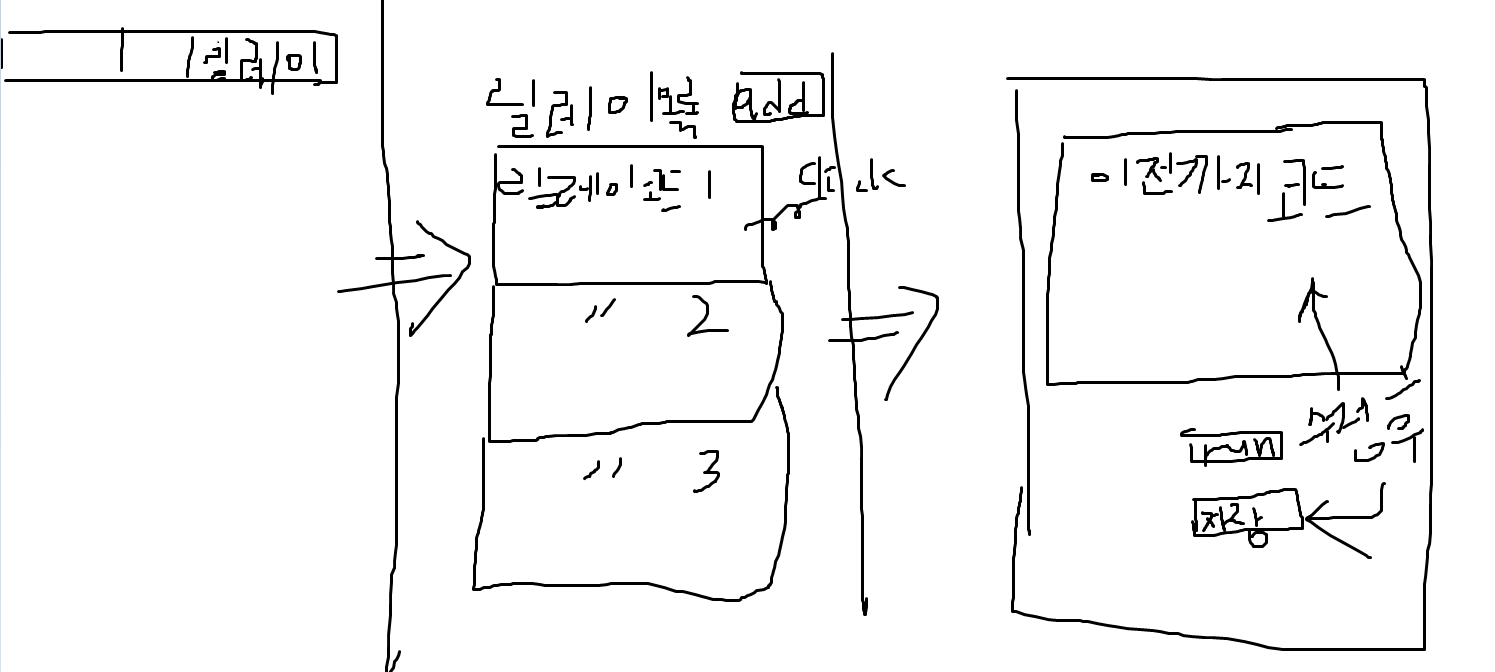 릴레이
릴레이 목록 add
릴레이 코드 1
click
〃 2
〃 3
이전까지 코드
run
저장